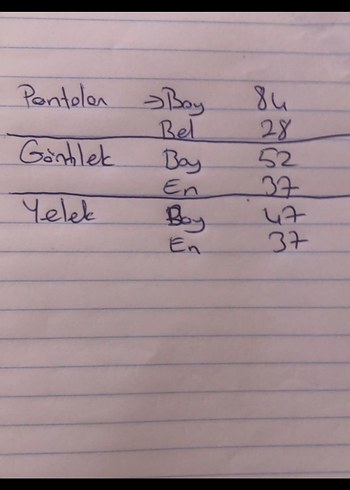 Pantolon →Boy 84
Bel 28
Gömlek Boy 52
En 37
Yelek Boy 47
En 37